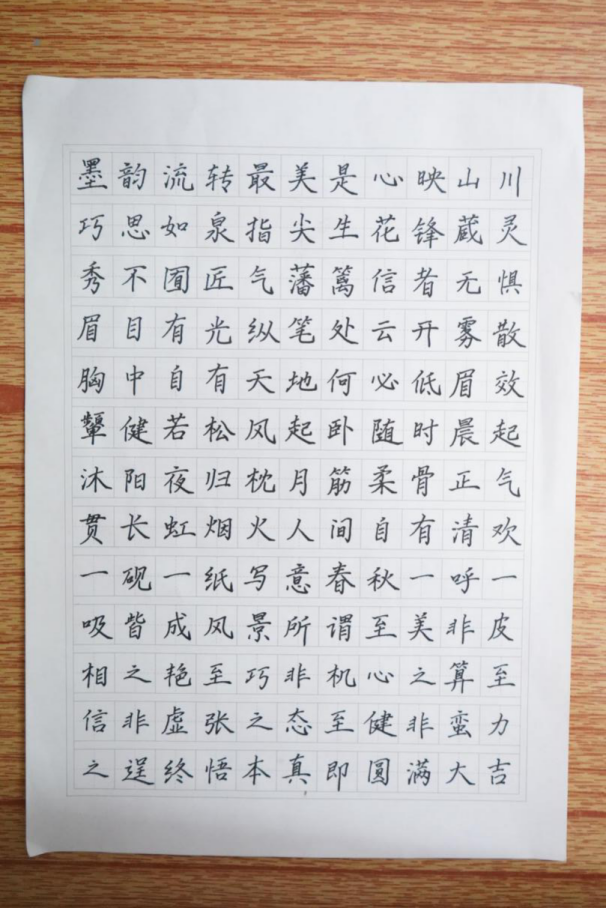 墨韵流转最美是心映山川
巧思如泉指尖生花锋蔵灵
秀不囿匠气藩篱信者无惧
眉目有光纵笔处云开雾散
胸中自有天地何必低眉效
颦健若松风起卧随时晨起
沐阳夜归枕月筋柔骨正气
贯长虹烟火人间自有清欢
一砚一纸写意春秋一呼一
吸皆成风景所谓至美非皮
相之艳至巧非机心之算至
信非虚张之态至健非蛮力
之逞终悟本真即圆满大吉